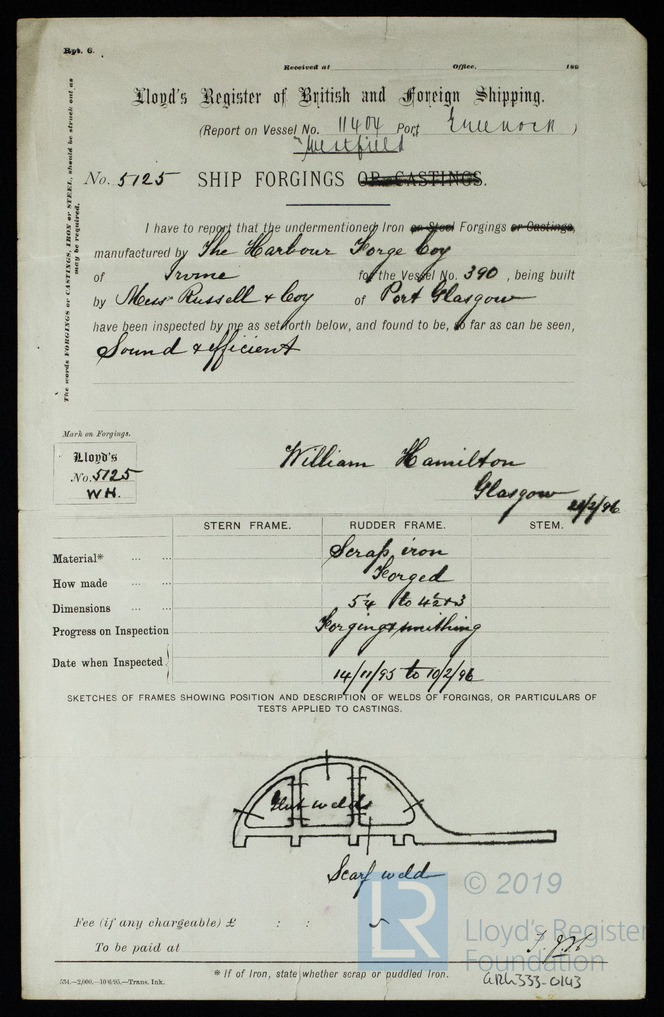 Rpt. 6.
Received at Office, 189
Lloyd's Register of British and Foreign Shipping.
(Report on Vessel No. 11404 Port Greenock )
"Westfield"
No. 5125 SHIP FORGINGS OR CASTINGS.
The words FORGINGS or CASTINGS, IRON or STEEL, should be struck out as
may be required.
I have to report that the undermentioned Iron or Steel Forgings or Castings,
manufactured by The Harbour Forge Coy
of Irvine for the Vessel No. 390, being built
by Messrs Russell & Coy of Port Glasgow
have been inspected by me as set forth below, and found to be, so far as can be seen,
Sound & efficient
Mark on Forgings.
Lloyd's
No. 5125
WH.
William Hamilton
Glasgow
/2/96
STERN FRAME. RUDDER FRAME. STEM.
Material* ... ... Scrap iron
How made ... ... Forged
Dimensions ... ... 5¼ to 4½ x 3
Progress on Inspection Forging & smithing
Date when Inspected 14/11/95 to 10/2/96
SKETCHES OF FRAMES SHOWING POSITION AND DESCRIPTION OF WELDS OF FORGINGS, OR PARTICULARS OF
TESTS APPLIED TO CASTINGS.
Glut welds
Scarf weld
Fee (if any chargeable) £ : : 5
To be paid at
* If of Iron, state whether scrap or puddled Iron.
534.—2,000.—10/6/95.—Trans. Ink.
LR
© 2019
Lloyd's Register
Foundation
GRK333-0143